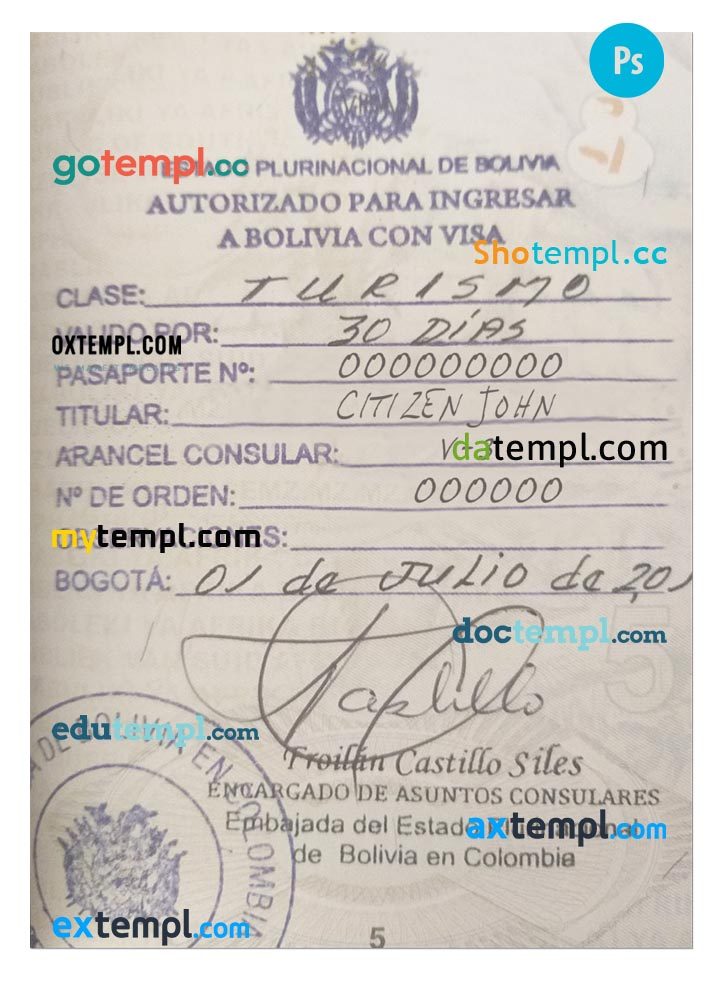 Ps
gotempl.cc
ESTADO PLURINACIONAL DE BOLIVIA
AUTORIZADO PARA INGRESAR
A BOLIVIA CON VISA
Shotempl.cc
CLASE: TURISMO
VALIDO POR: 30 DÍAS
OXTEMPL.COM
PASAPORTE Nº: 000000000
TITULAR: CITIZEN JOHN
ARANCEL CONSULAR:
datempl.com
Nº DE ORDEN: 000000
OBSERVACIONES:
mytempl.com
BOGOTÁ: 01 de JULIO de 201
doctempl.com
Castillo
edutempl.com
DE BOLIVIA EN COLOMBIA
Troilán Castillo Siles
ENCARGADO DE ASUNTOS CONSULARES
Embajada del Estado Plurinacional
axtempl.com
de Bolivia en Colombia
extempl.com
5